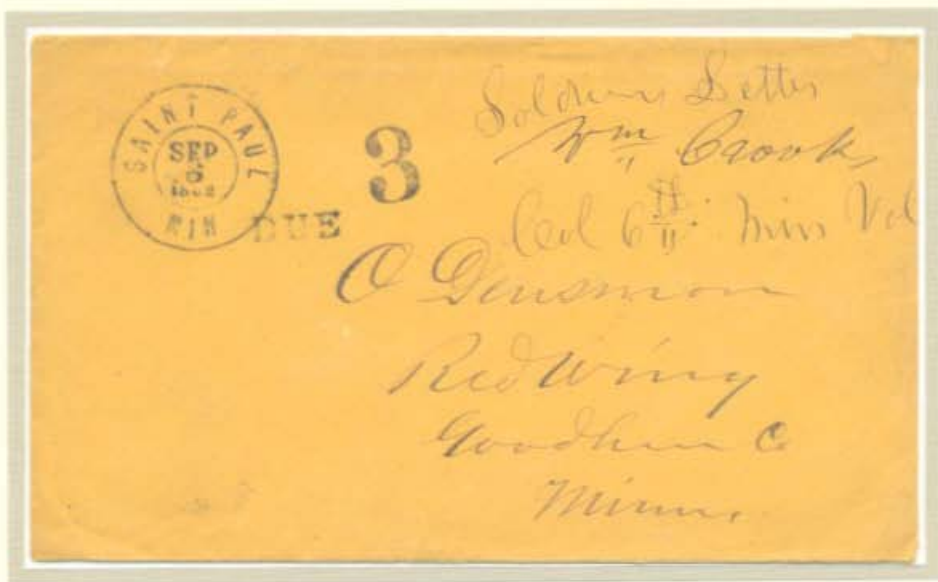 SAINT PAUL
SEP
6
1862
MIN
DUE
3
Soldiers Letter
Wm Crooks
Col 6th Minn Vol
O Densmore
Red Wing
Goodhue Co
Minn.